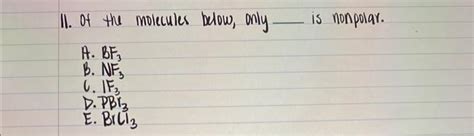 11. Of the molecules below, only ____ is nonpolar.
A. BF₃
B. NF₃
C. IF₃
D. PBr₃
E. BrCl₃